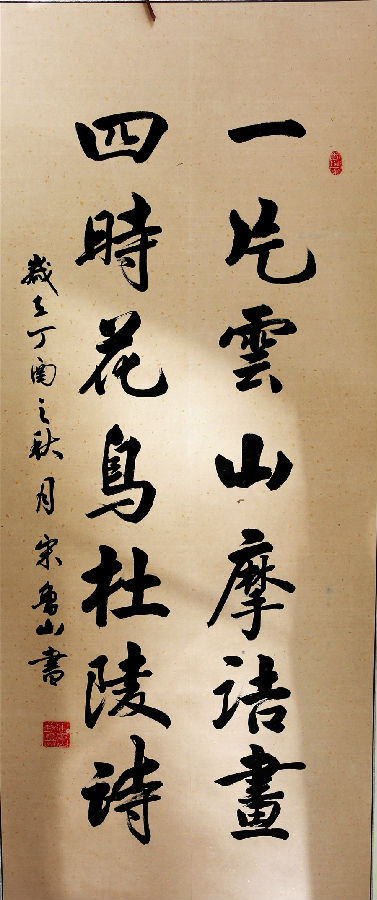 一片雲山摩詰畫
四時花鳥杜陵詩
歲在丁酉之秋月宋魯山書